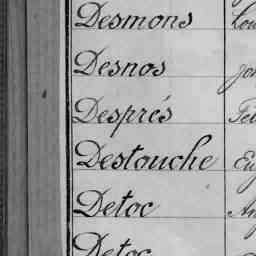 Desmons
Desnos
Després
Destouche
Detoc
Detoc